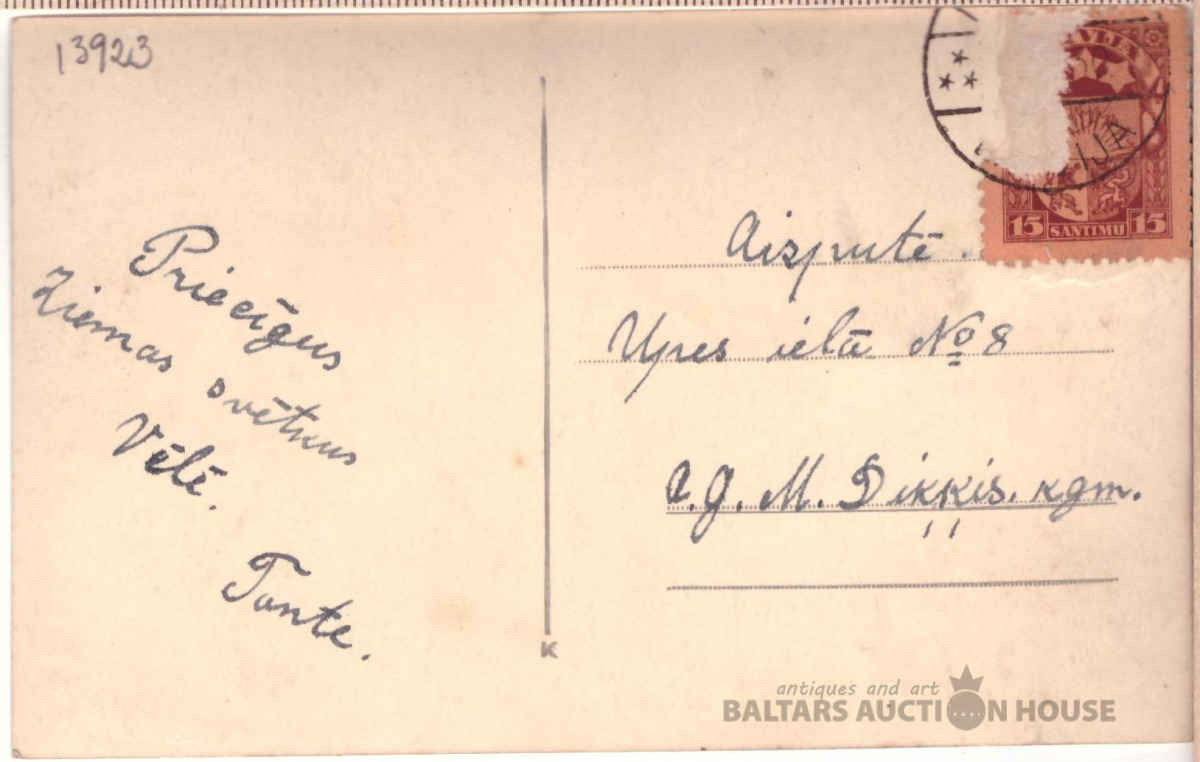 13923
Priecīgus
Ziemas svētkus
Vēlē.
Tante.
K
LATVIJA
15 SANTIMU 15
Aizputē.
Upes ielā № 8
M. Diķķis. kgm.
antiques and art
BALTARS AUCTION HOUSE